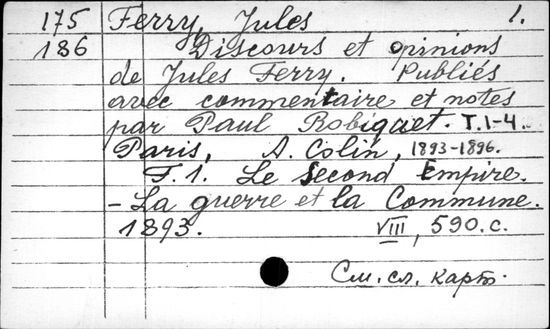 175 Ferry, Jules 1.
186 Discours et opinions
de Jules Ferry. Publiés
avec commentaire et notes
par Paul Robiquet. T.1-4.
Paris, A. Colin, 1893-1896.
T.1. Le Second Empire.
- La guerre et la Commune.
1893. VIII, 590.c.
См. сл. карт.